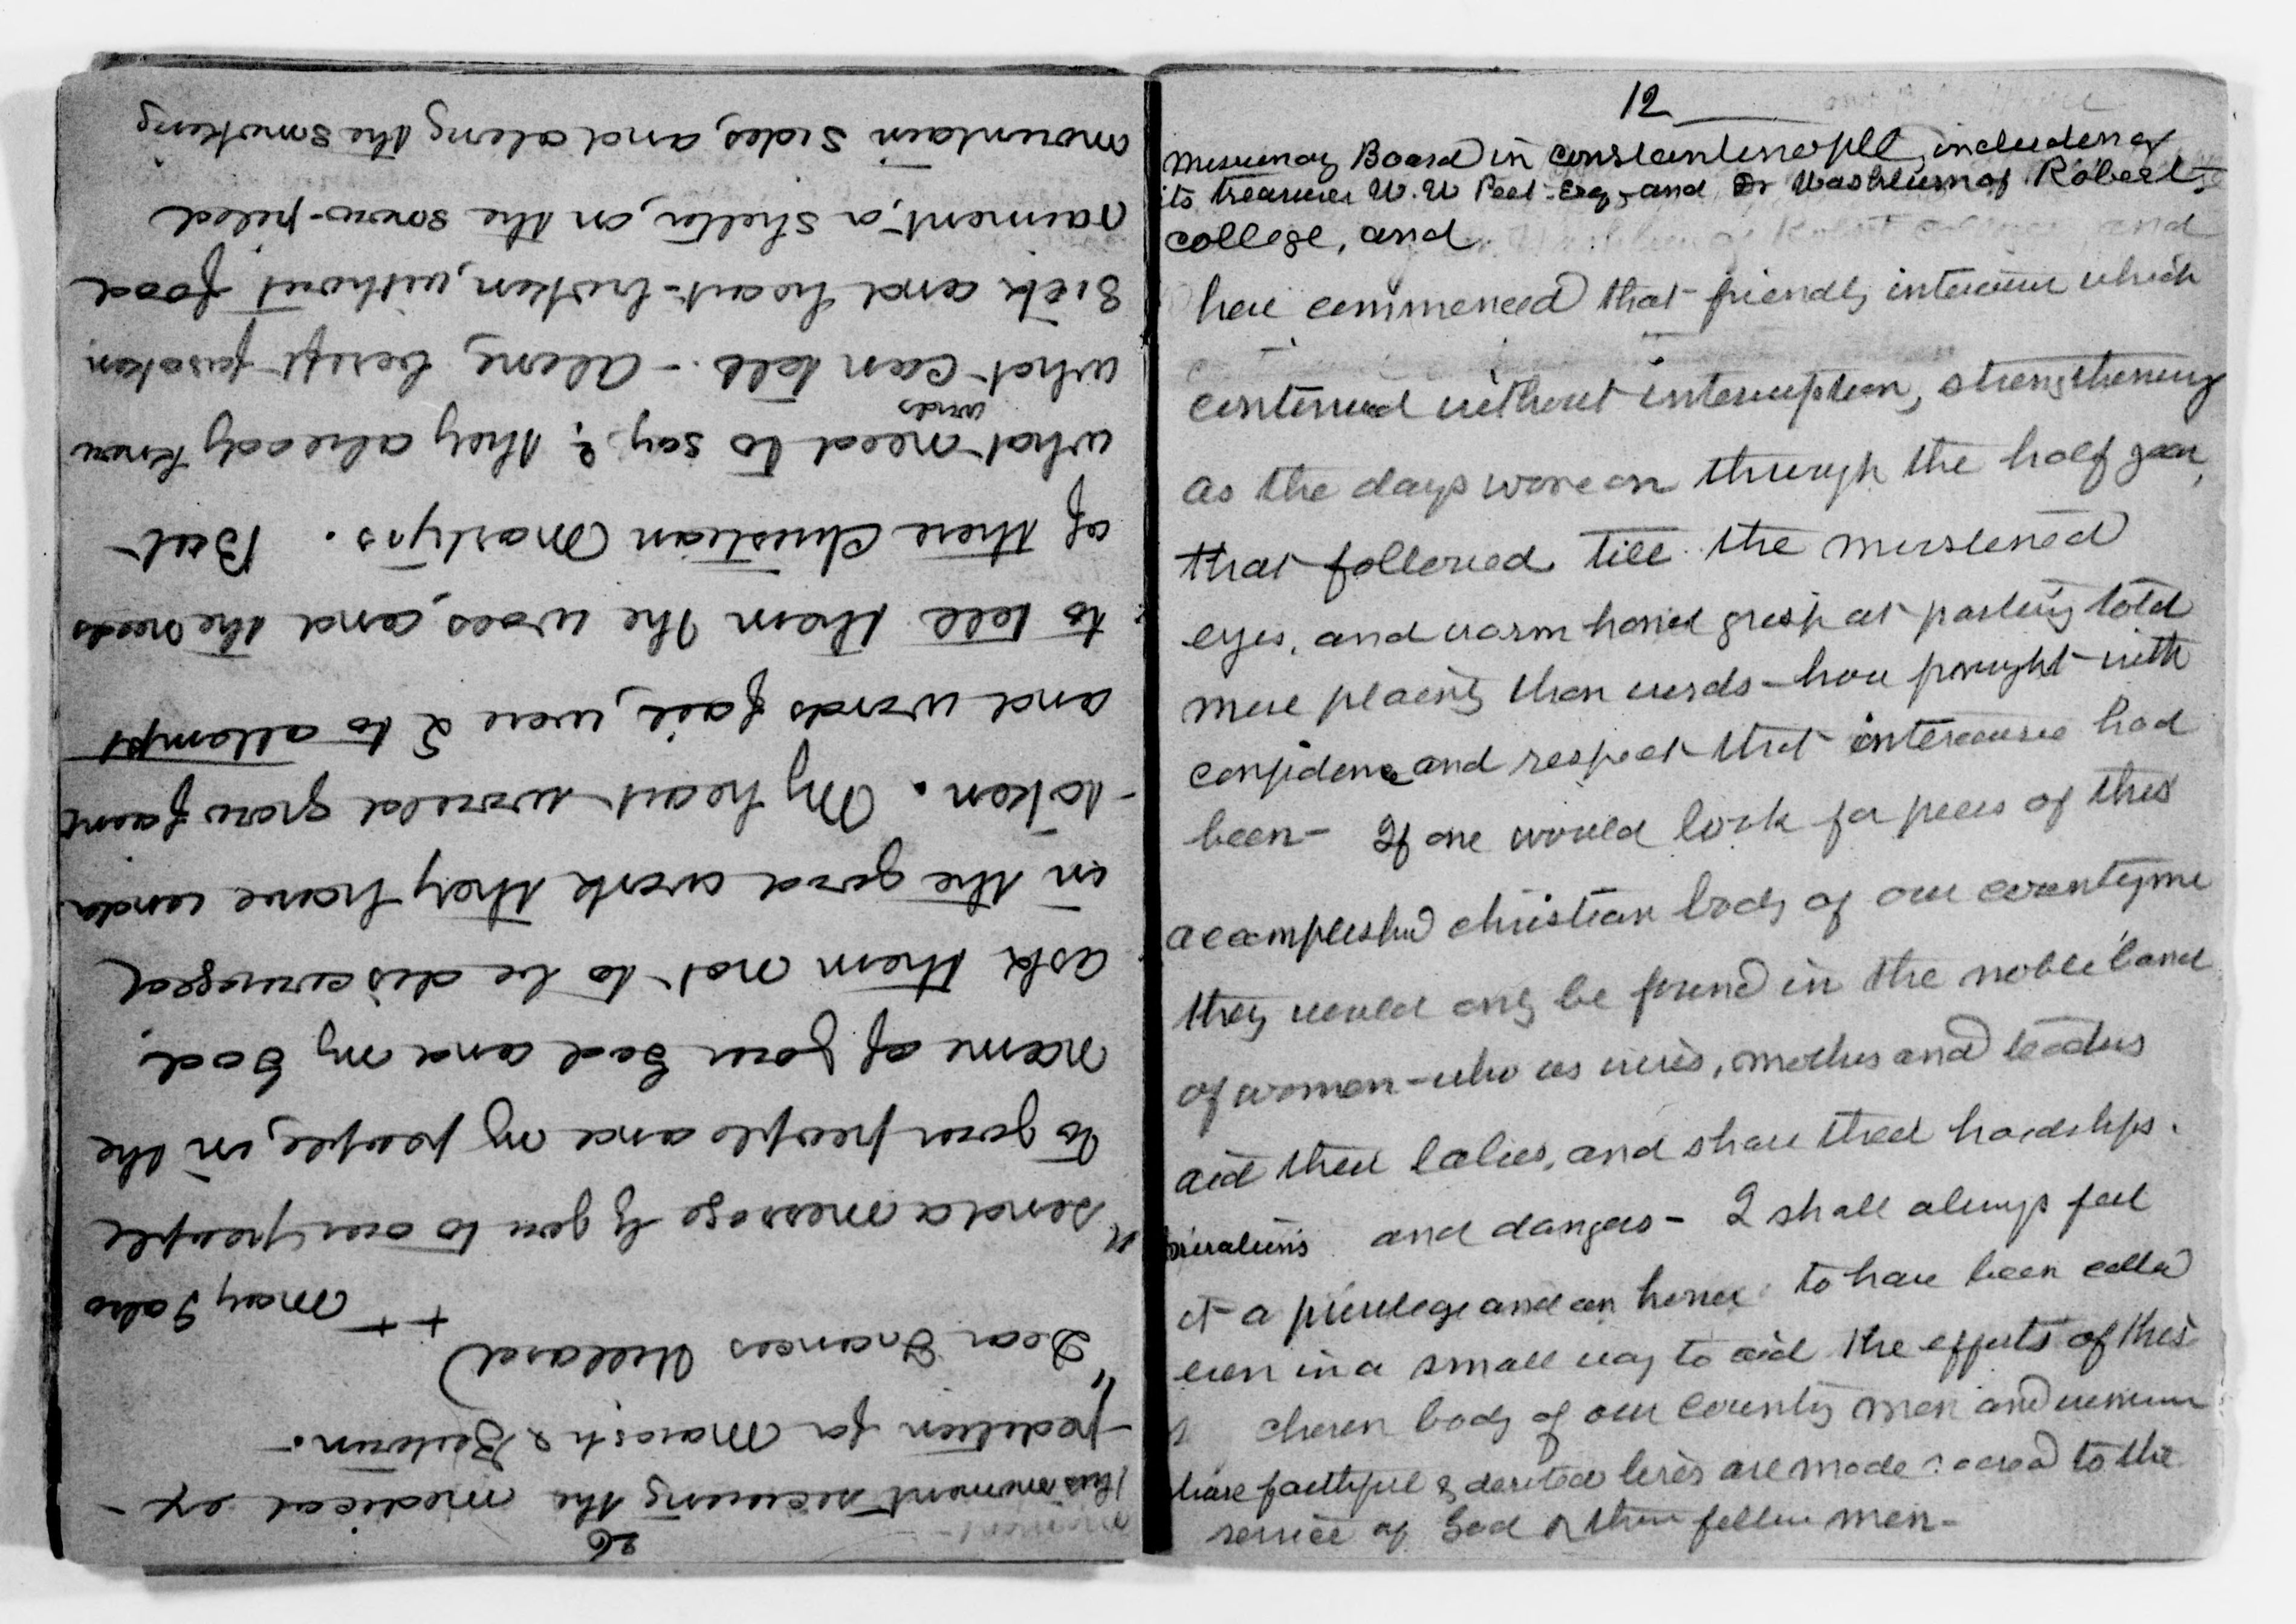 12
Missionary Board in Constantinople, including
its treasurer W. W Peet Esq, and Dr Washburn of Robert
College, and
here commenced that friendly intercourse which
continued without interruption, strengthening
as the days wore on through the half year,
that followed till the moistened
eyes, and warm hand grasp at parting told
more plainly than words – how fraught with
confidence and respect that intercourse had
been – If one would look for peers of this
accomplished christian body of our countryme
they would only be found in the noble band
of women – who as wives, mothers and teachers
aid their labors, and share their hardships.
privations and dangers – I shall always feel
it a privilege and an honor to have been called
even in a small way to aid the efforts of this
chosen body of our country men and women
whose faithful & devoted lives are made sacred to the
service of God & their fellow men –
26
this moment securing the medical ex-
-pedition for Marash & Beeteun.
"Dear Frances Willard
++ May I also
send a message by you to our people
to your people and my people, in the
name of your God and my God.
ask them not to be discouraged
in the good work they have under
-taken. My heart would grow faint
and words fail, were I to attempt
to tell them the woes, and the needs
of these Christian Martyrs. But
what need to say? they already know
what words can tell. – Alone, bereft forsaken
sick and heart-broken, without food
raiment, or shelter, on the snow-piled
mountain sides, and along the smoking